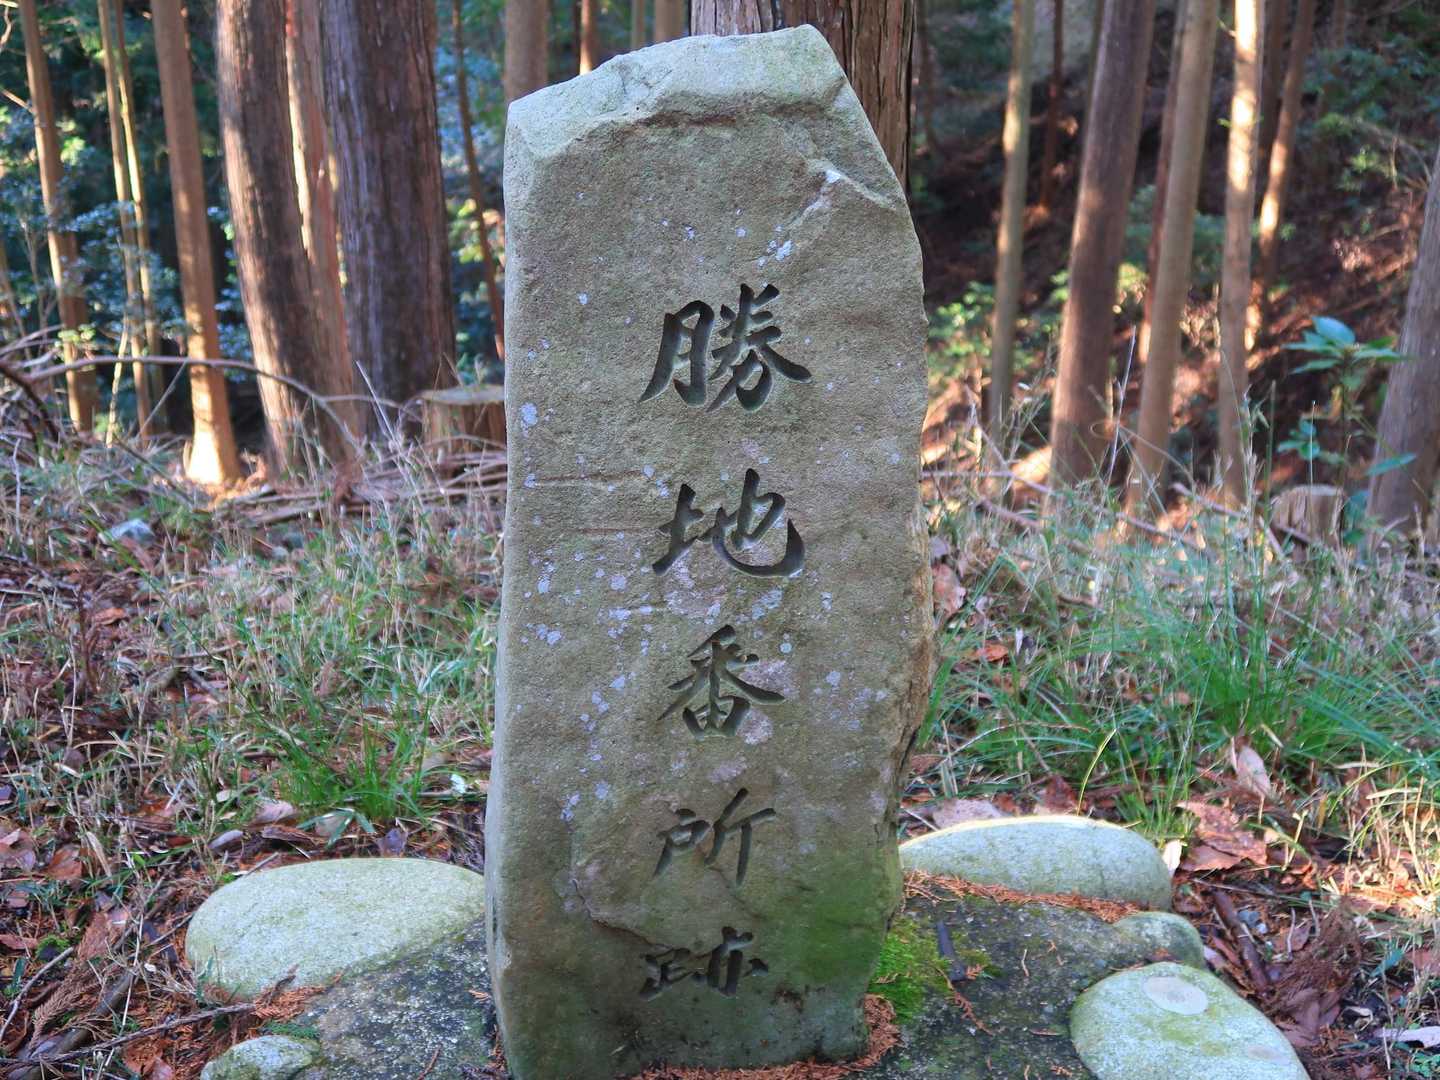 勝地番所跡